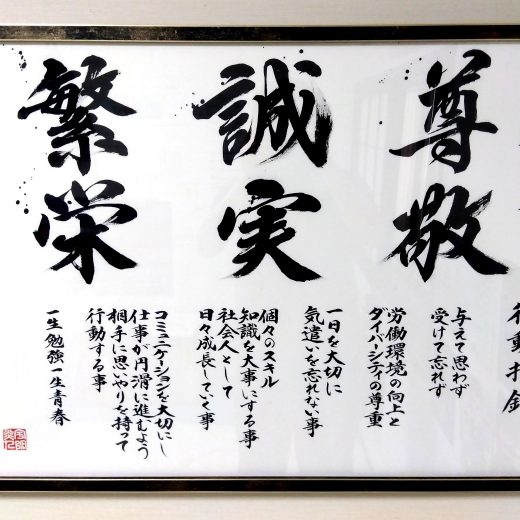 行動指針
尊敬
与えて思わず
受けて忘れず
労働環境の向上と
ダイバーシティの尊重
誠実
一日を大切に
気遣いを忘れない事
個々のスキル
知識を大事にする事
社会人として
日々成長していく事
繁栄
コミュニケーションを大切にし
仕事が円滑に進むよう
相手に思いやりを持って
行動する事
一生勉強一生青春